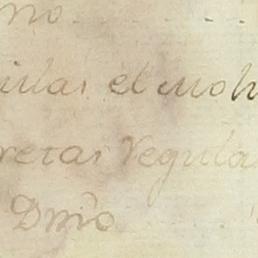 no
illas el moh
retas Regula
Dmo